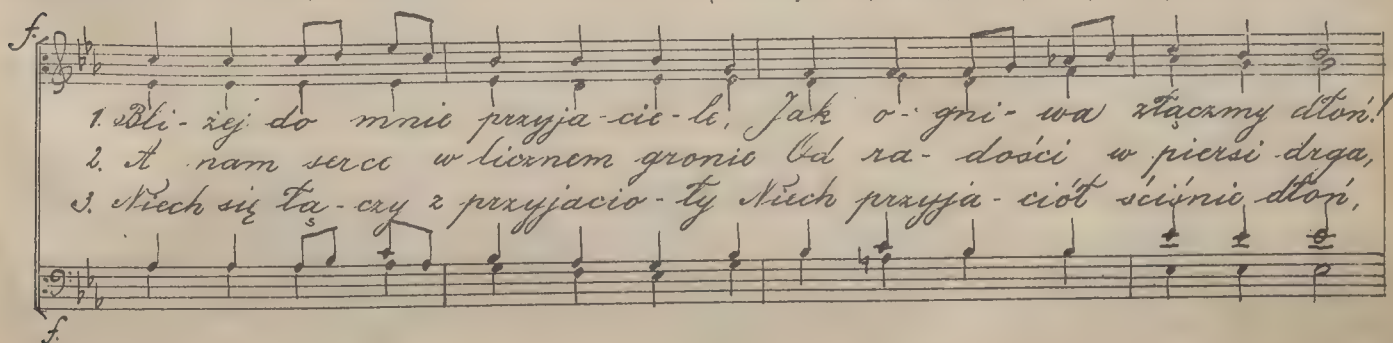 f.
1. Bli-żej do mnie przyja-cie-le, Jak o-gni-wa złączmy dłoń!
2. A nam serce w licznem gronie Od ra-dości w piersi drga,
3. Niech się łą-czy z przyjacio-ły Niech przyja-ciół ściśnie dłoń,
f.